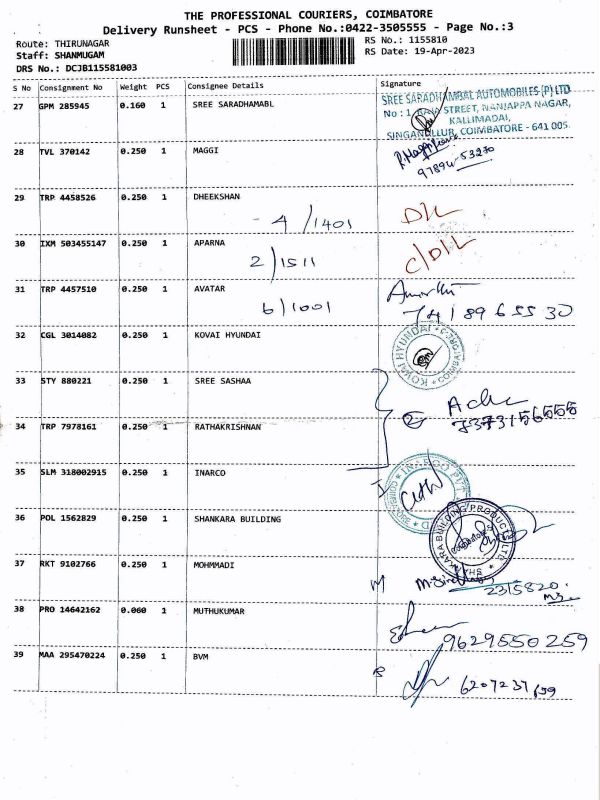 THE PROFESSIONAL COURIERS, COIMBATORE
Delivery Runsheet - PCS - Phone No.:0422-3505555 - Page No.:3
Route: THIRUNAGAR
RS No.: 1155810
Staff: SHANMUGAM
RS Date: 19-Apr-2023
DRS No.: DCJB115581003
S No Consignment No Weight PCS Consignee Details Signature
27 GPM 285945 0.160 1 SREE SARADHAMBL
SREE SARADHAMBAL AUTOMOBILES (P) LTD
No : 1, RAJA STREET, NANJAPPA NAGAR,
KALLIMADAI,
SINGANALLUR, COIMBATORE - 641 005.
28 TVL 370142 0.250 1 MAGGI
97894-53270
29 TRP 4458526 0.250 1 DHEEKSHAN
4/1401 D/L
30 IXM 503455147 0.250 1 APARNA
2/1511 C/D/L
31 TRP 4457510 0.250 1 AVATAR
6/1001
7418965530
32 CGL 3014082 0.250 1 KOVAI HYUNDAI
KOVAI HYUNDAI
33 STY 880221 0.250 1 SREE SASHAA
7373156555
34 TRP 7978161 0.250 1 RATHAKRISHNAN
35 SLM 318002915 0.250 1 INARCO
INARCO PVT
36 POL 1562829 0.250 1 SHANKARA BUILDING
BUILDING PRODUCTS LTD
37 RKT 9102766 0.250 1 MOHMMADI
M
2315820
38 PRO 14642162 0.060 1 MUTHUKUMAR
9629550259
39 MAA 295470224 0.250 1 BVM
B